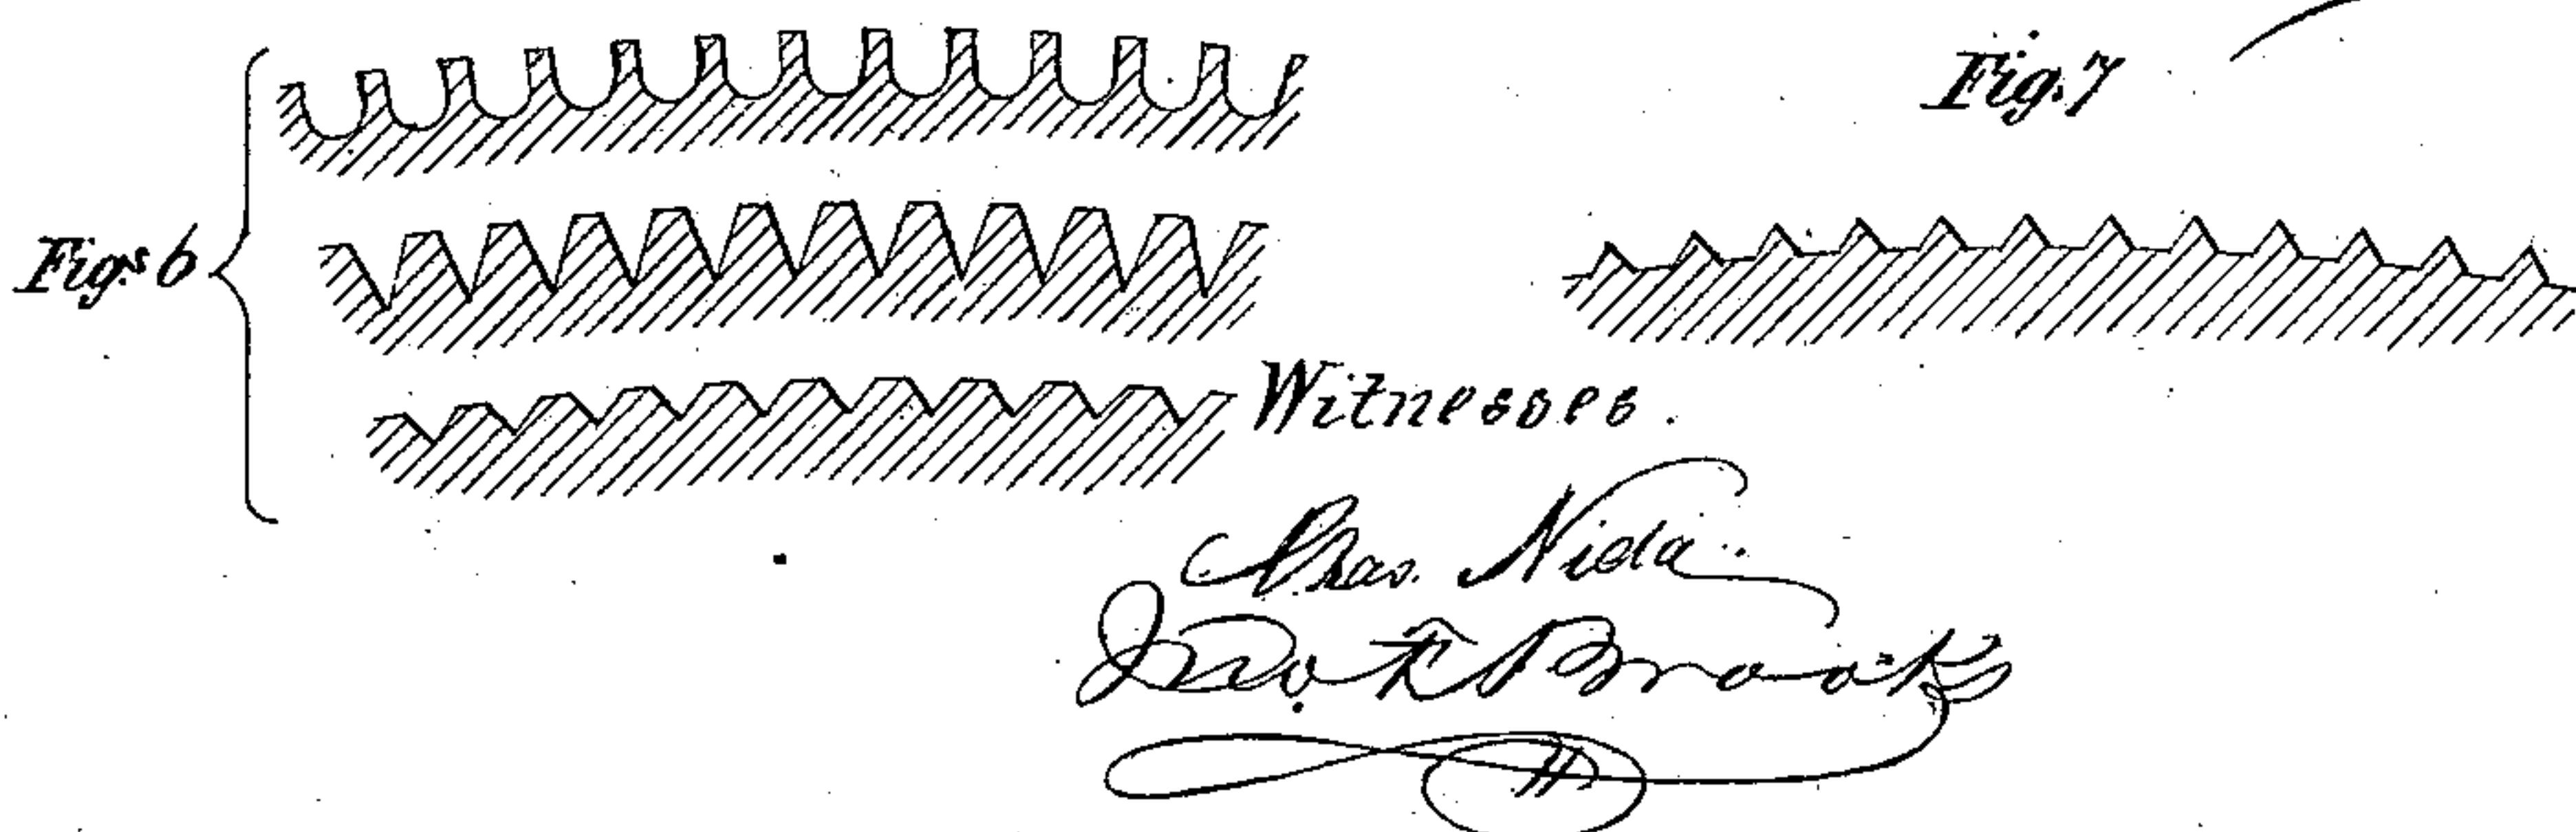 Fig. 7
Figs 6
Witnesses.
Chas. Nida
Jno. Brooks